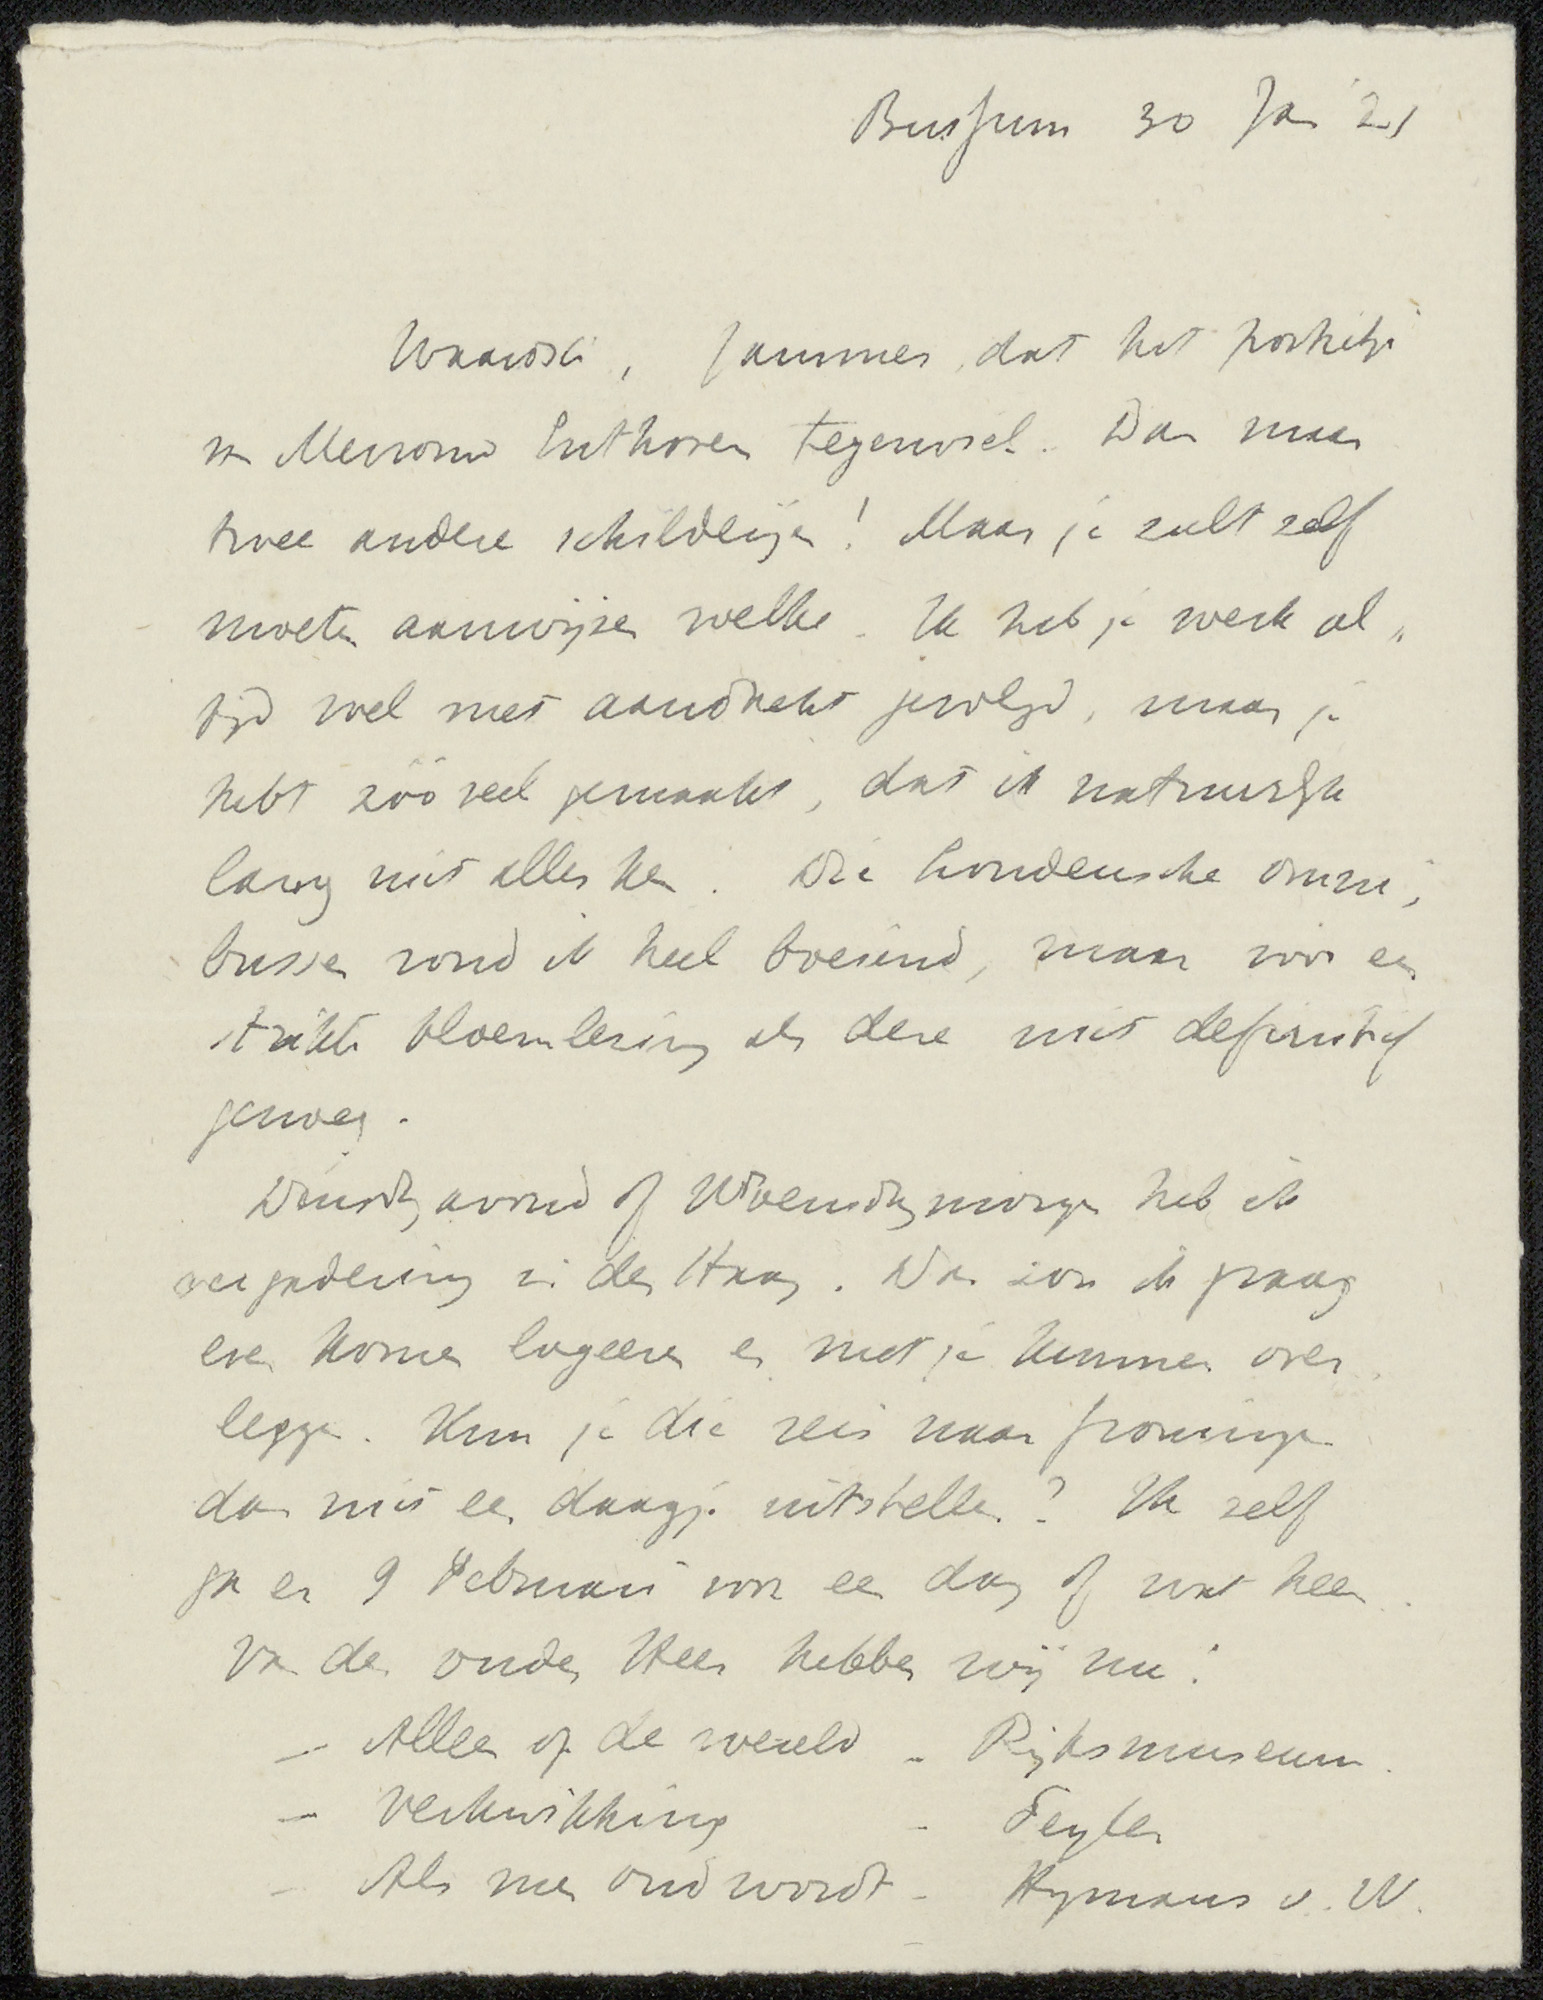 Bussum 30 Jan '21
Waarde, Jammer, dat het portretje
van Mevrouw Enthoven tegenviel. Dan maar
twee andere schilderijen! Maar je zult zelf
moeten aanwijzen welke. Ik heb je werk al„
tijd wel met aandacht gevolgd, maar je
hebt zóó veel gemaakt, dat ik natuurlijk
lang niet alles ken. Die Londensche omni„
bussen vond ik heel boeiend, maar voor een
strikte bloemlezing als deze niet definitief
genoeg.
Dinsdagavond of Woensdagmorgen heb ik
vergadering in den Haag. Dan zou ik graag
even komen logeeren en met je kunnen over
leggen. Kun je die reis naar Groningen
dan niet een daagje uitstellen? Ik zelf
ga er 9 Februari voor een dag of wat heen.
Van den ouden Heer hebben wij nu:
— Alleen op de wereld - Rijksmuseum.
— Verkwikking - Teyler
- Als men oud wordt - Hymans v. W.